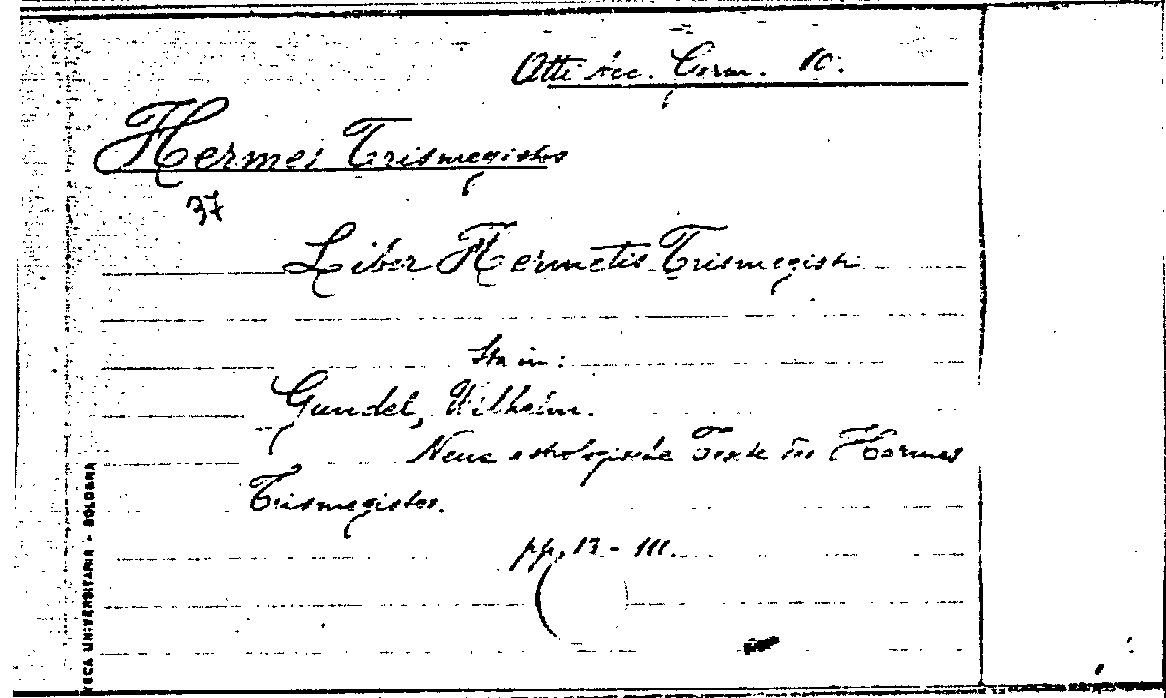 Atti Acc. Germ. 10.
Hermes Trismegistos
37
Liber Hermetis Trismegisti
Sta in:
Gundel, Wilhelm.
Neue astrologische Texte des Hermes
Trismegistos.
pp. 12 - 111.
TECA UNIVERSITARIA - BOLOGNA